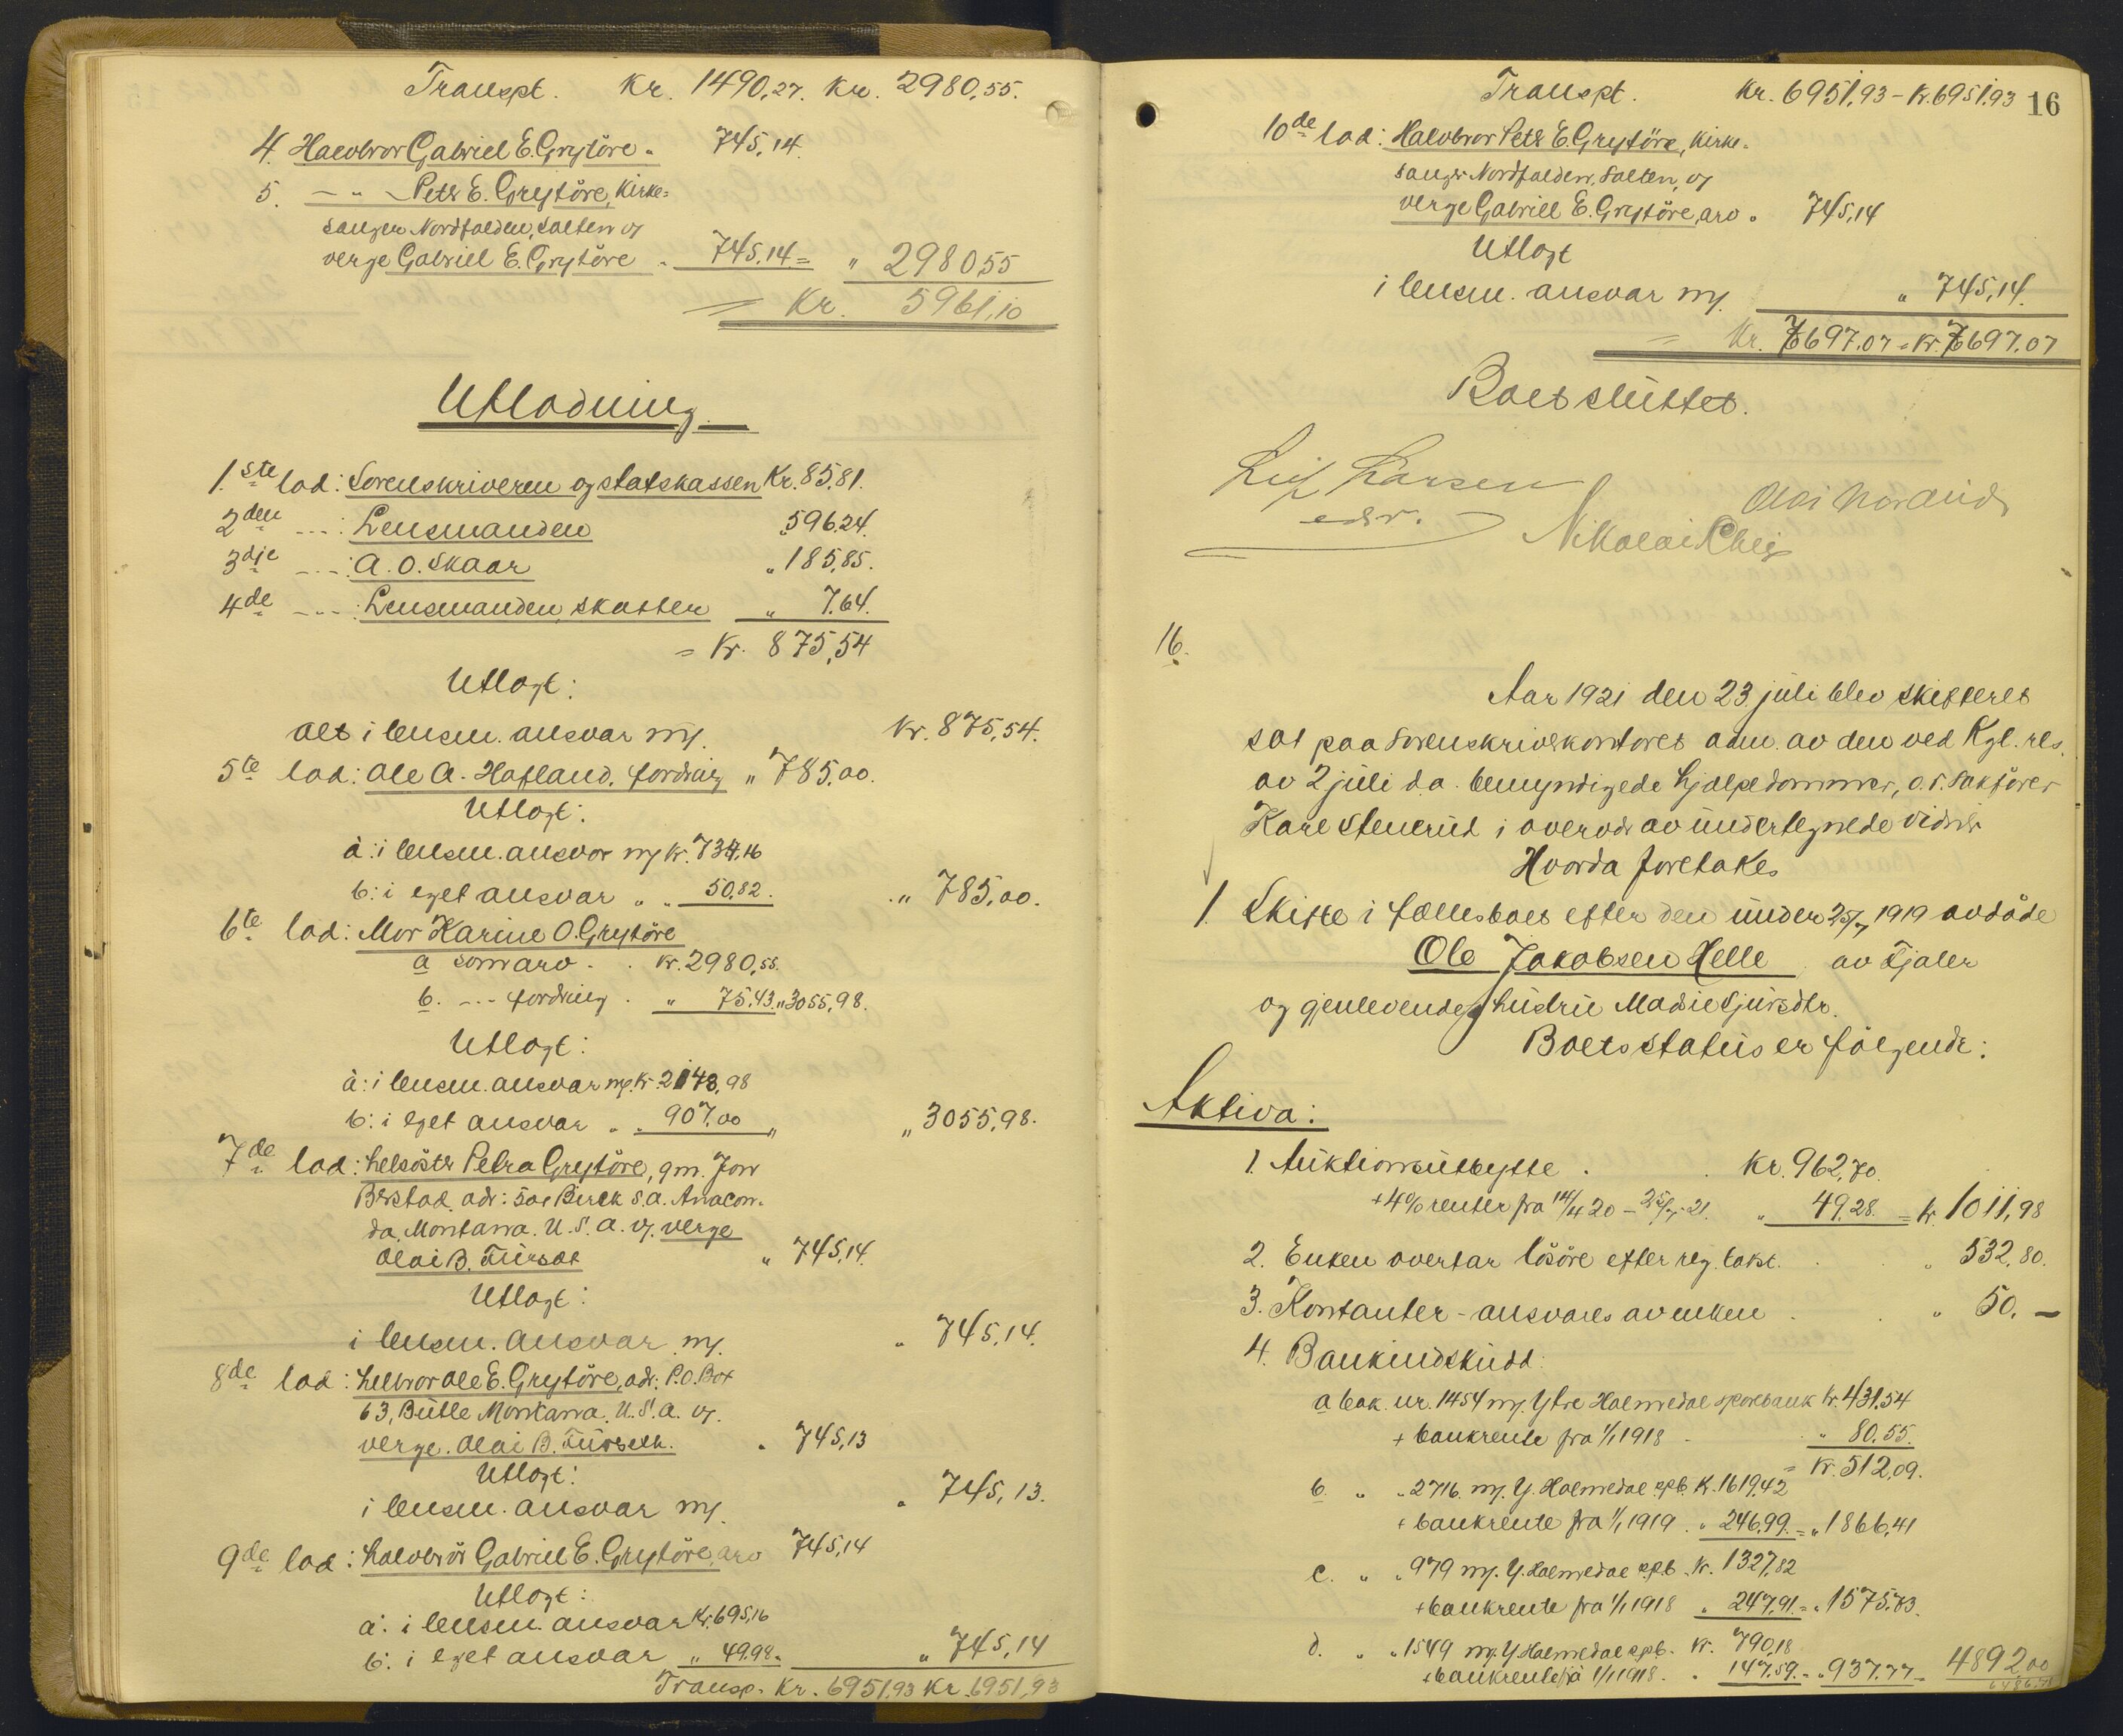 Transpt. Kr. 1490,27. Kr. 2980,55.
4. Halvbror Gabriel E. Grytöre „ 745,14.
5. – „ – Petr E. Grytöre, Kirke=
sanger Nordfolden, Salten og
verge Gabriel E. Grytöre „ 745,14 = „ 2980,55
= Kr. 5961,10
Utlodning.
1.ste lod: Sorenskriveren og statskassen Kr. 85,81.
2den –..– : Lensmanden „ 596,24.
3dje –..– : A. O. Skaar „ 185,85.
4de –..– : Lensmanden, skatter „ 7,64.
= Kr. 875,54
Utlagt:
alt i lensm. ansvar m/. Kr. 875,54.
5te lod: Ole A. Hafland, fordring „ 785,00.
Utlagt:
a: i lensm. ansvar m/ kr. 734,16
b: i eget ansvar „ „ 50,82. „ 785,00.
6te lod: Mor Karine O. Grytöre
a som arv . . kr. 2980,55.
b. –..– fordring . „ 75,43 „ 3055,98.
Utlagt:
a: i lensm. ansvar m/. kr. 2148,98
b: i eget ansvar „ „ 907,00 „ „ 3055,98.
7de lod: helsöster Petra Grytöre, gm. Jon
adr: Birck S. a. Anacon-
da, Montana. U. S. A. v/. verge
Olai B. „ 745,14.
Utlagt:
i lensm. ansvar m/. „ 745,14.
8de lod: helbror Ole E. Grytöre, adr. P.O. Box
63, Butte Montana. U. S. A. v/.
verge. Olai B. „ 745,13
Utlagt:
i lensm. ansvar m/. „ 745,13.
9de lod: halvbror Gabriel E. Grytöre, arv 745,14
Utlagt:
a: i lensm. ansvar Kr. 695,16
b: i eget ansvar „ 49,98. „ 745,14
Transp. Kr. 6951,93 Kr. 6951,93
Transpt. Kr. 6951,93 – Kr. 6951,93 16
10de lod: Halvbror Petr E. Grytöre, Kirke-
sanger Nordfolden, Salten, og
verge Gabriel E. Grytöre, arv „ 745,14
Utlagt
i lensm. ansvar m/. „ 745,14.
= Kr. 7697.07 = Kr. 7697.07
Boet sluttet.
Leif Larsen
edsv.
Nikolai
16.
Aar 1921 den 23 juli blev skifteret
sat paa Sorenskriverkontoret adm. av den ved Kgl. res.
av 2 juli d.a. bemyndigede hjælpedommer, o.r. Sakförer
Kare Stenerud i overvær av undertegnede vidner
Hvorda foretokes
1. Skifte i fællesboet efter den under 25/7 1919 avdöde
Ole Jakobsen Helle av Fjaler
og gjenlevende hustru Madsie Sjursdtr.
Boets status er fölgende:
Aktiva:
1. Auktionsutbytte . . Kr. 962,70.
+ 4% renter fra 14/4 20 – 25/7 21. „ 49,28. = kr. 1011,98
2. Enken overtar lösöre efter reg. takst. . „ 532,80.
3. Kontanter – ansvares av enken . . „ 50. –
4. Bankindskudd:
a bok. nr. 1454 m/. Ytre Holmedal sparebank kr. 431,54
+ bankrente fra 1/1 1918 . . „ 80.55.
= Kr. 512,09.
b. „ „ 2716. m/. Y. Holmedal spb. K. 1619,42
+ bankrente fra 1/1 1919 . „ 246,99. = „ 1866,41
c. „ „ 979 m/. Y. Holmedal spb. Kr. 1327,82
+ bankrente fra 1/1 1918 „ 247,91. = „ 1575,73.
d. „ „ 1549 m/. Y Holmedal spb. Kr. 790,18
+ bankrente fra 1/1 1918. „ 147,59. = „ 937,77 = 4892,00